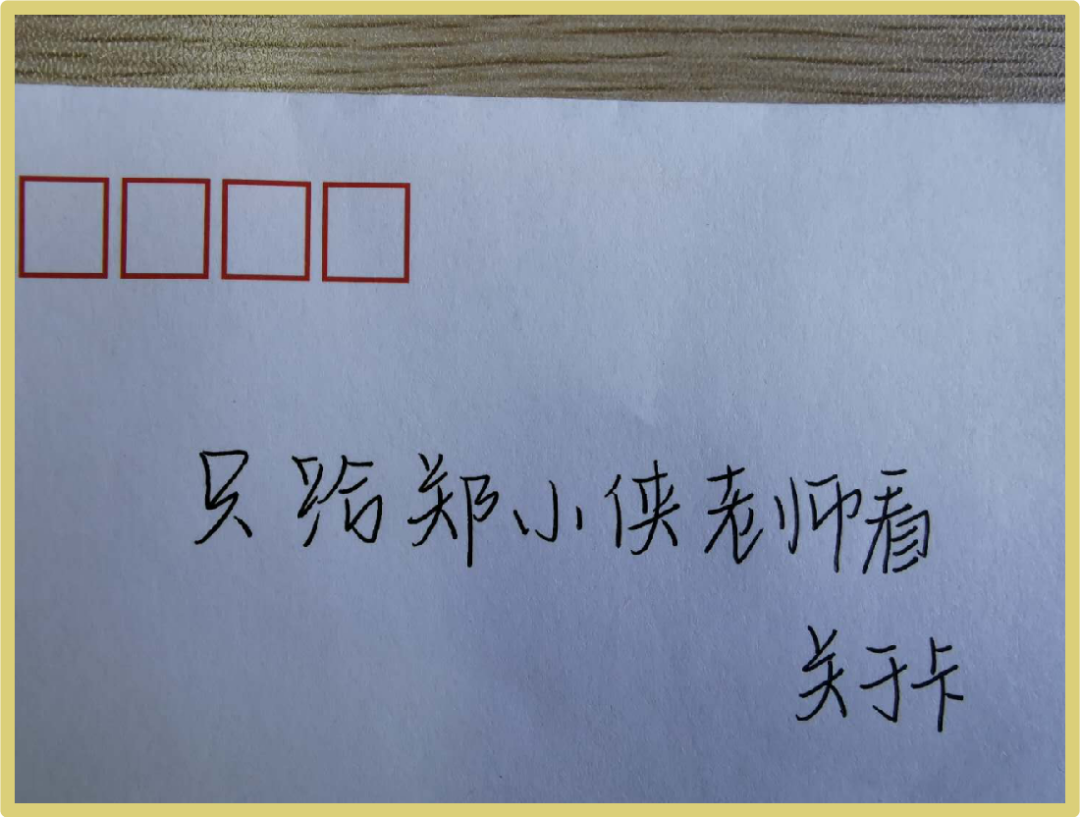 只给郑小侠老师看
关于卡